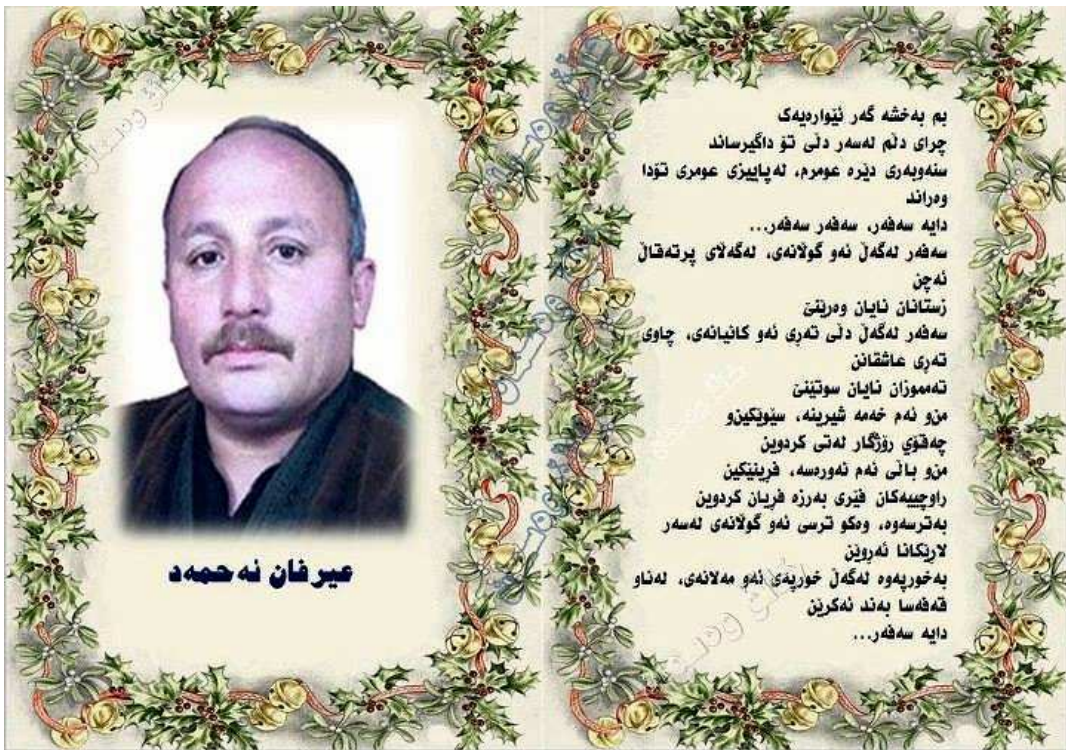 بم بەخشە گەر ئێوارەیەک
چرای دڵم لەسەر دڵی تۆ داگیرساند
سنەوبەری دێرە عومرم، لەپاییزی عومری تۆدا
وەراند
دایە سەفەر، سەفەر سەفەر...
سەفەر لەگەڵ ئەو گوڵانەی، لەگەڵای پرتەقاڵ
ئەچن
زستانان نایان وەرێنێ
سەفەر لەگەڵ دڵی تەڕی ئەو کانیانەی، چاوی
تەڕی عاشقانن
تەمموزان نایان سوتێنێ
منو ئەم خەمە شیرینە، سێوێکینو
چەقۆی رۆژگار لەتی کردوین
منو باڵی ئەم نەورەسە، فڕینێکین
راوچییەکان فێری بەرزە فڕیان کردوین
بەترسەوە، وەکو ترسی ئەو گوڵانەی لەسەر
لاڕێکانا ئەڕوێن
بەخورپەوە لەگەڵ خورپەی ئەو مەلانەی، لەناو
قەفەسا بەند ئەکرێن
دایە سەفەر...
عیرفان ئەحمەد